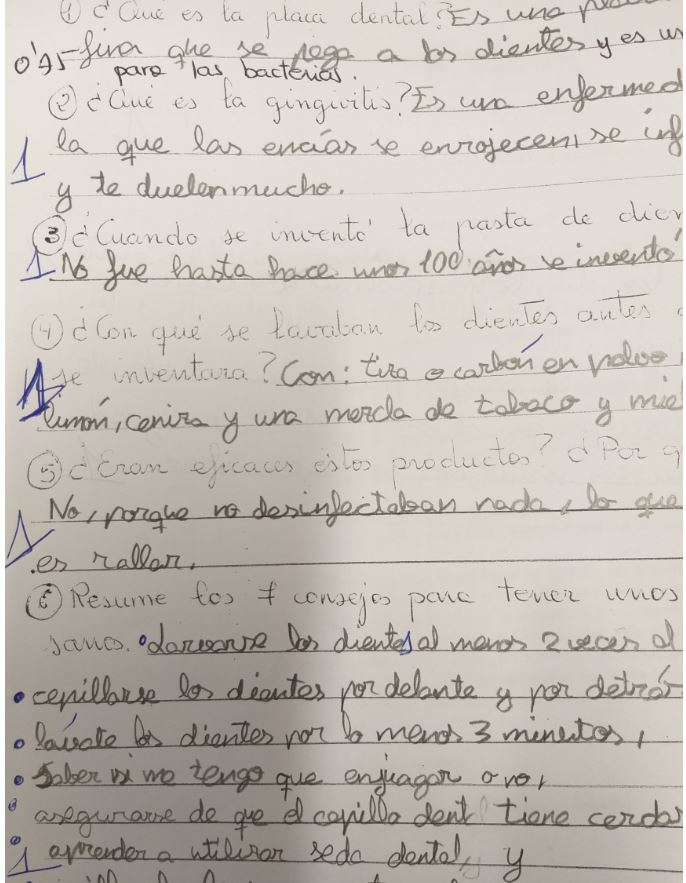 ① ¿Qué es la placa dental? Es una
0'75 fina que se pega a los dientes y es un
para las bacterias.
② ¿Qué es la gingivitis? Es una enfermed
1 la que las encías se enrojecen, se inf
y te duelen mucho.
③ ¿Cuando se inventó la pasta de dien
1 No fue hasta hace unos 100 años se inventó
④ ¿Con qué se lavaban los dientes antes
1 se inventara? Con: tiza o carbón en polvo
limón, ceniza y una mezcla de tabaco y mie
⑤ ¿Eran eficaces estos productos? ¿Por q
No, porque no desinfectaban nada, lo que
1 es rallan.
⑥ Resume los 7 consejos para tener unos
sanos. los dientes al menos 2 veces al
• cepillarse los dientes por delante y por detrás
• lavate los dientes por lo menos 3 minutos,
• saber si me tengo que enjuagar o no,
• asegurarse de que el cepillo dent tiene cerdas
• 1 aprender a utilizar seda dental, y